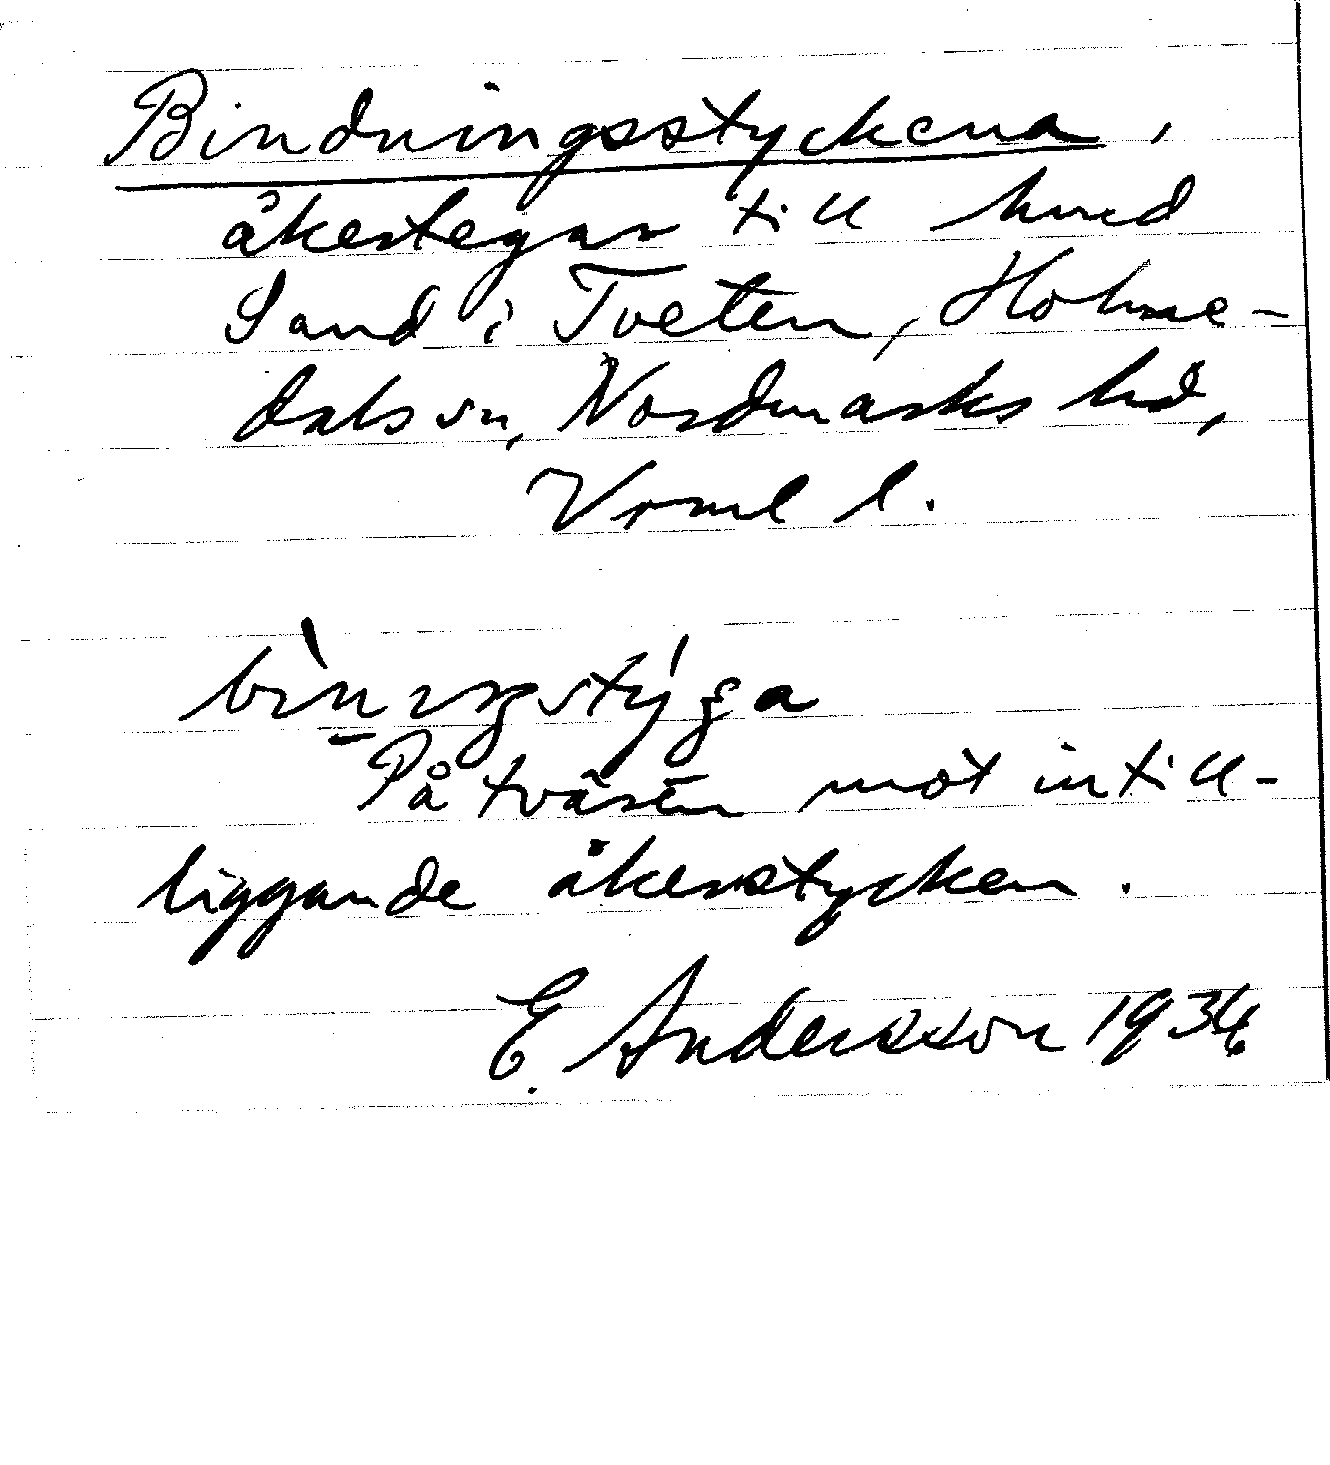 Bindningsstyckena,
åkertegar till hmd
Sand i Tveten, Holme-
dals sn, Nordmarks hd,
Vrml l.
bìnıŋstýʒa
På tvären mot intill-
liggande åkerstycken.
E. Andersson 1934